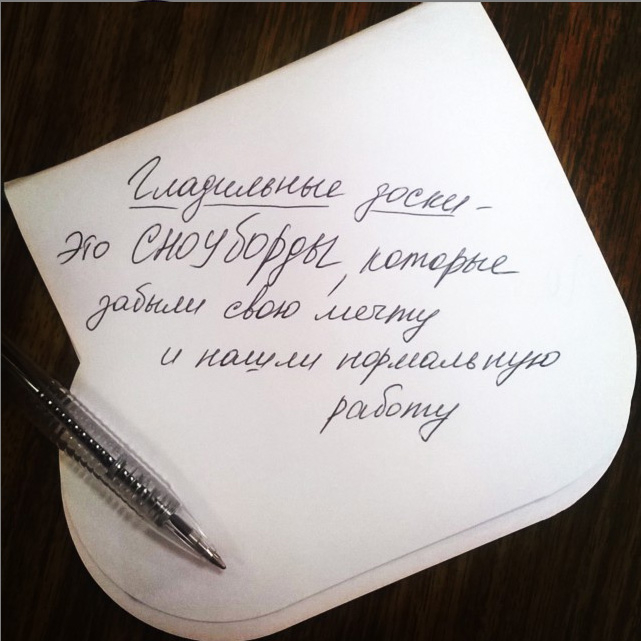 Гладильные доски -
это СНОУБОРДЫ, которые
забыли свою мечту
и нашли нормальную
работу